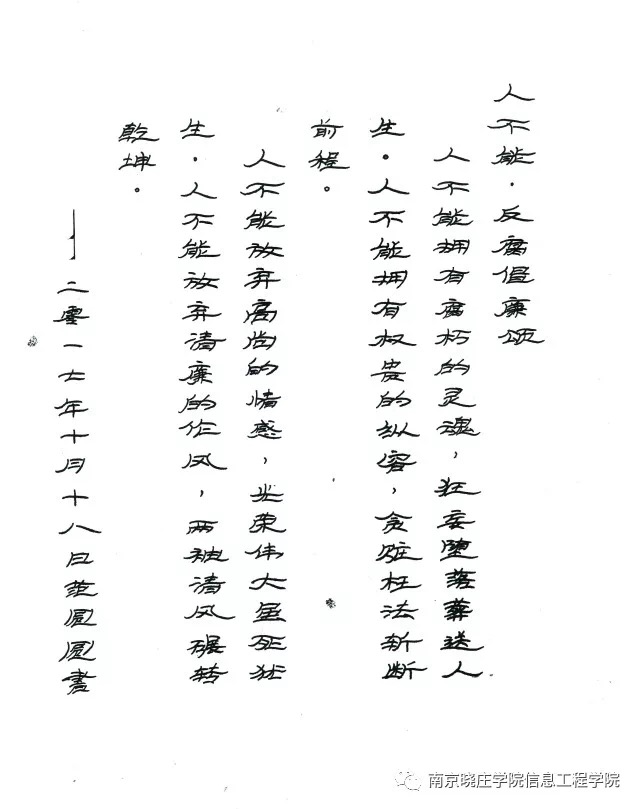 人不能·反腐倡廉颂
人不能拥有腐朽的灵魂，狂妄堕落葬送人
生。人不能拥有权贵的纵容，贪赃枉法斩断
前程。
人不能放弃高尚的情感，光荣伟大虽死犹
生。人不能放弃清廉的作风，两袖清风碾转
乾坤。
——二零一七年十月十八日范圆圆书
南京晓庄学院信息工程学院